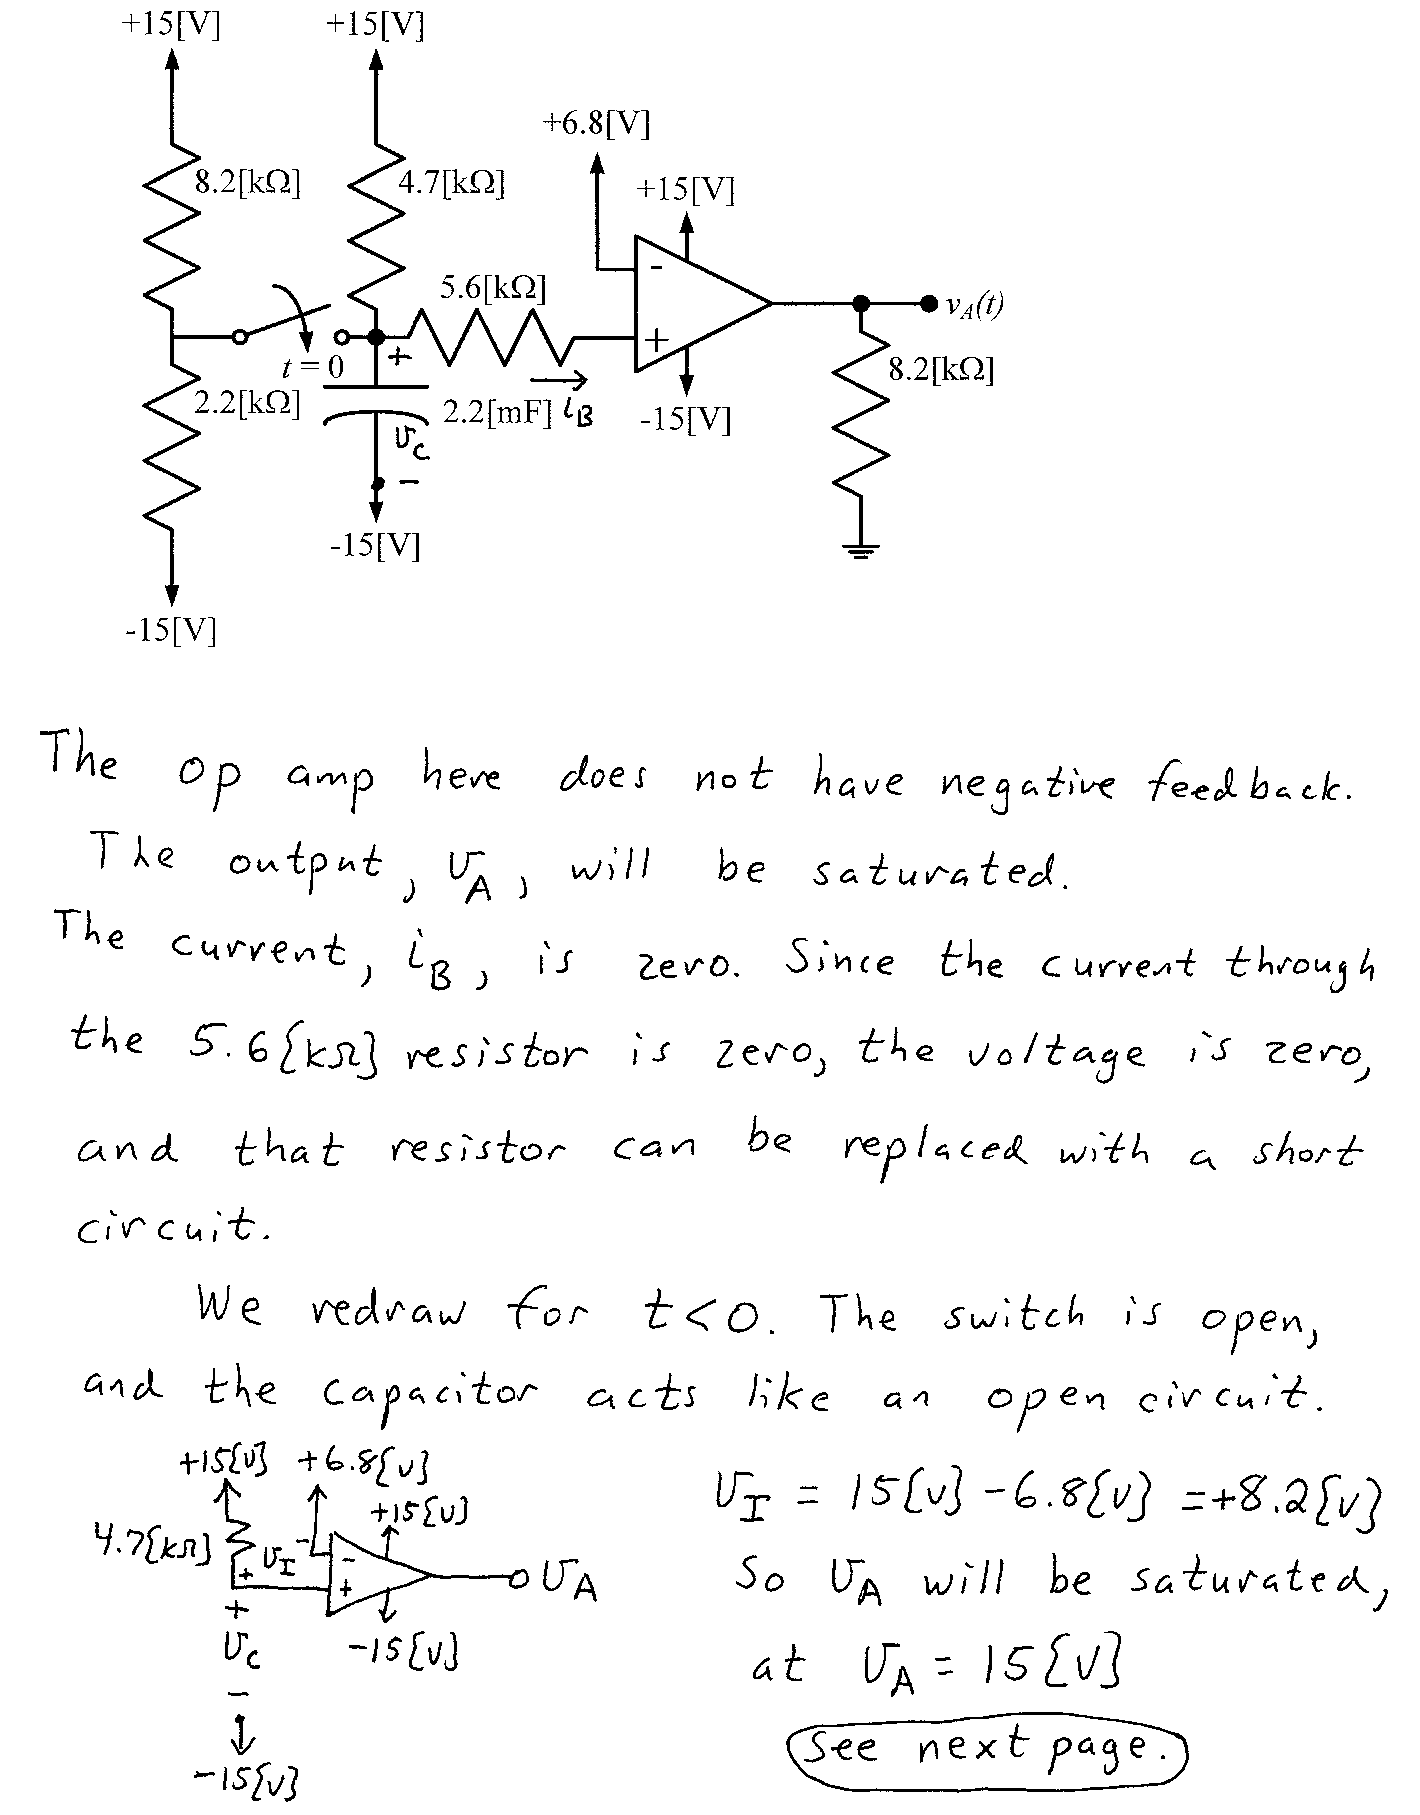 +15[V] +15[V]
+6.8[V]
8.2[kΩ] 4.7[kΩ] +15[V]
5.6[kΩ]
- 
vA(t)
+
+
t = 0
8.2[kΩ]
2.2[kΩ] 2.2[mF] iB -15[V]
vC
-
-15[V]
-15[V]
The op amp here does not have negative feedback.
The output, vA, will be saturated.
The current, iB, is zero. Since the current through
the 5.6[kΩ] resistor is zero, the voltage is zero,
and that resistor can be replaced with a short
circuit.
We redraw for t<0. The switch is open,
and the capacitor acts like an open circuit.
+15[V] +6.8[V]
+15[V]
4.7[kΩ] vI - -
+ + vA
+
vC -15[V]
-
-15[V]
vI = 15[V] -6.8[V] =+8.2[V]
So vA will be saturated,
at vA = 15[V]
See next page.